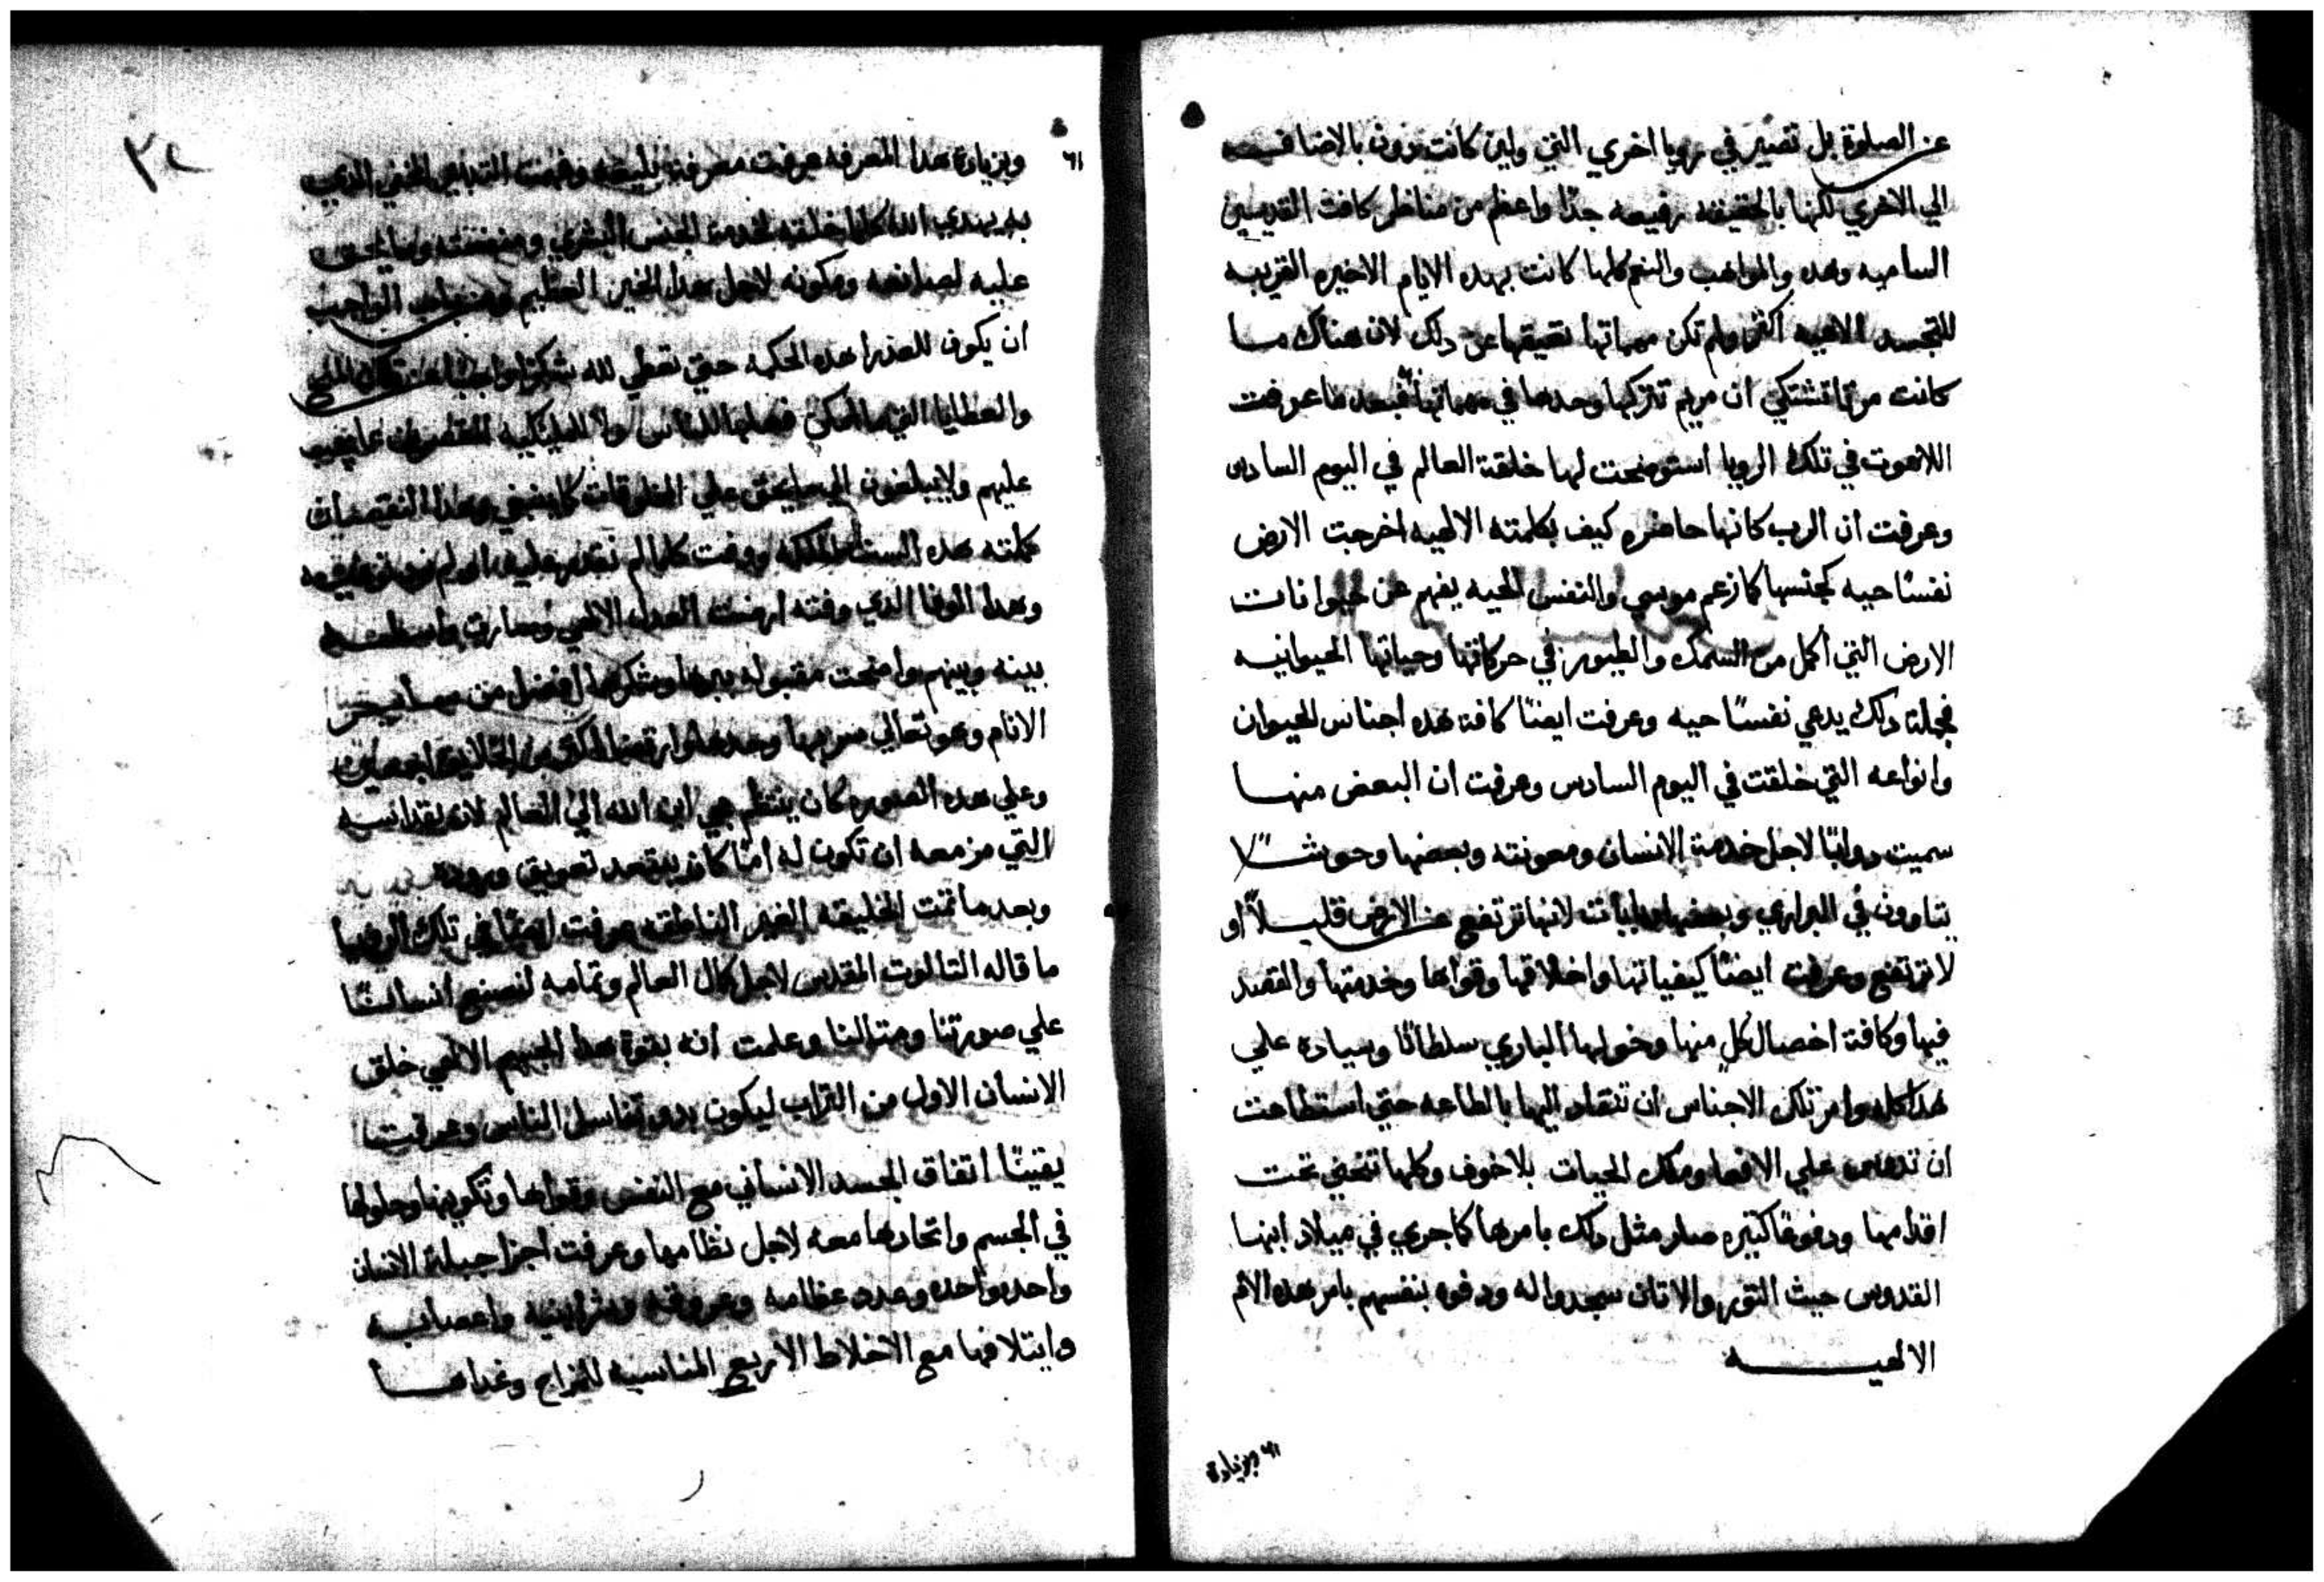 عن الصلوة بل تصير في رويا اخري التي ولين كانت دون بالاضافه
الي الاخري لكنها بالحقيقه رفيعه جدًا واعظم من مناظر كافة القديسين
الساميه وهده والمواهب والنعم كلها كانت بهده الايام الاخيره القريبه
للتجسد الالهيه اكثر ولم تكن مهماتها تعيقها عن دلك لان هناك ما
كانت مرتا تشتكي ان مريم تتركها وحدها في مهماتها فبعد ما عرفت
اللاهوت في تلك الرويا استوضحت لها خلقة العالم في اليوم السادس
وعرفت ان الرب كانها حاضره كيف بكلمته الالهيه اخرجت الارض
نفسًا حيه كجنسها كما زعم موسي والنفس الحيه يفهم عن حيوانات
الارض التي اكمل من السمك والطيور في حركاتها وحياتها الحيوانيه
فجملة دلك يدعي نفسًا حيه وعرفت ايضًا كافة هده اجناس الحيوان
وانواعه التي خلقت في اليوم السادس وعرفت ان البعض منها
سميت دوابًا لاجل خدمة الانسان ومعونته وبعضها وحوشًا
يتاوون في البراري وبعضها دبابات لانها ترتفع عن الارض قليلاً او
لا ترتفع وعرفت ايضًا كيفياتها واخلاقها وقواها وخدمتها والقصد
فيها وكافة اخصال كلٍ منها وخولها الباري سلطانًا وسياده علي
هدا كله وامر تلك الاجناس ان تنقاد اليها بالطاعه حتي استطاعت
ان تدهس علي الافعا وملك الحيات بلا خوف وكلها تنحني تحت
اقدامها ودفوعًا كتيره صار مثل دلك بامرها كما جري في ميلاد ابنها
القدوس حيث التور والاتان سجدوا له ودفوه بنفسهم بامر هده الام
الالهيه
٦١ وبزيادة
٦١ وبزيادة هدا المعرفه عرفت معرفة بليغه وفهمت التدبير الخفي الدي
به يهدي الله كلما خلقه لخدمة الجنس البشري ومنفعته وما يحق
عليه لصانعه ومكونه لاجل هدا الخير العظيم ومن باب الواجب
ان يكون للعدرا هده الحكمه حتي تعطي لله شكرًا واجبًا عن
والعطايا التي فعلها للناس ولا المليكيه المقصرون عما يجب
عليهم ولا يبلغون الي ما يحق علي المخلوقات كما ينبغي وهدا النقصان
كملته هده الست الملكه ووفت كلما لم نقدر
وهدا الوفا الدي وفته ارضت العدل الالهي وصارت واسطه
بينه وبينهم واضحت مقبوله ببرها وشكرها افضل من ساير
الانام وهو تعالي سر بها وحدها
وعلي هده الصوره كان ينتظم مجي ابن الله الي العالم لان بقداسه
التي مزمعه ان تكون له امًا كان يبتعد تعويق وروده
وبعد ما تمت الخليقه الغير الناطقه عرفت ايضًا في تلك الرويا
ما قاله التالوت المقدس لاجل كمال العالم وتمامه لنصنع انسانًا
علي صورتنا ومتالنا وعلمت انه بقوة هدا الالهي خلق
الانسان الاول من التراب ليكون بدو تناسل الناس وعرفت
يقينًا اتفاق الجسد الانساني مع النفس وقواها وتكوينها وحلولها
في الجسم واتحادها معه لاجل نظامها وعرفت اجزا جبلة الانسان
واحده واحده وعدد عظامه وعروقه وشراينه واعصابه
وايتلافها مع الاخلاط الاربع المناسبه للمزاج وغداها